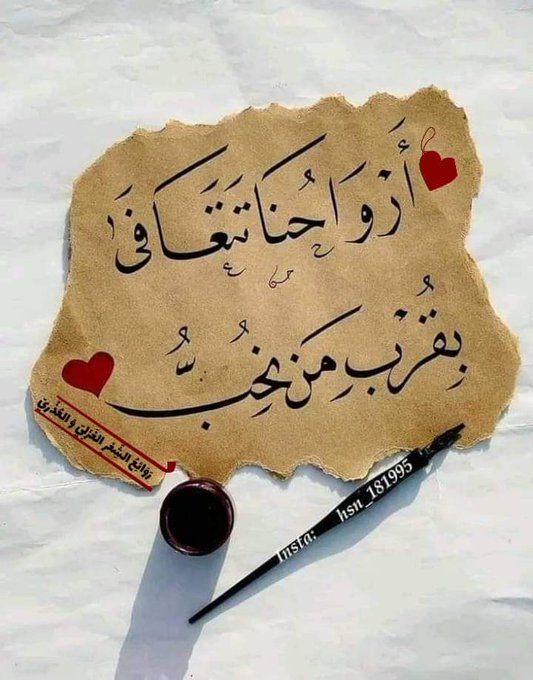 أَرْوَاحُنَا تَتَعَافَىٰ
بِقُرْبِ مَن نُحِبُّ
روائع الشعر الغزلي و العذري
Insta: hsn_181995